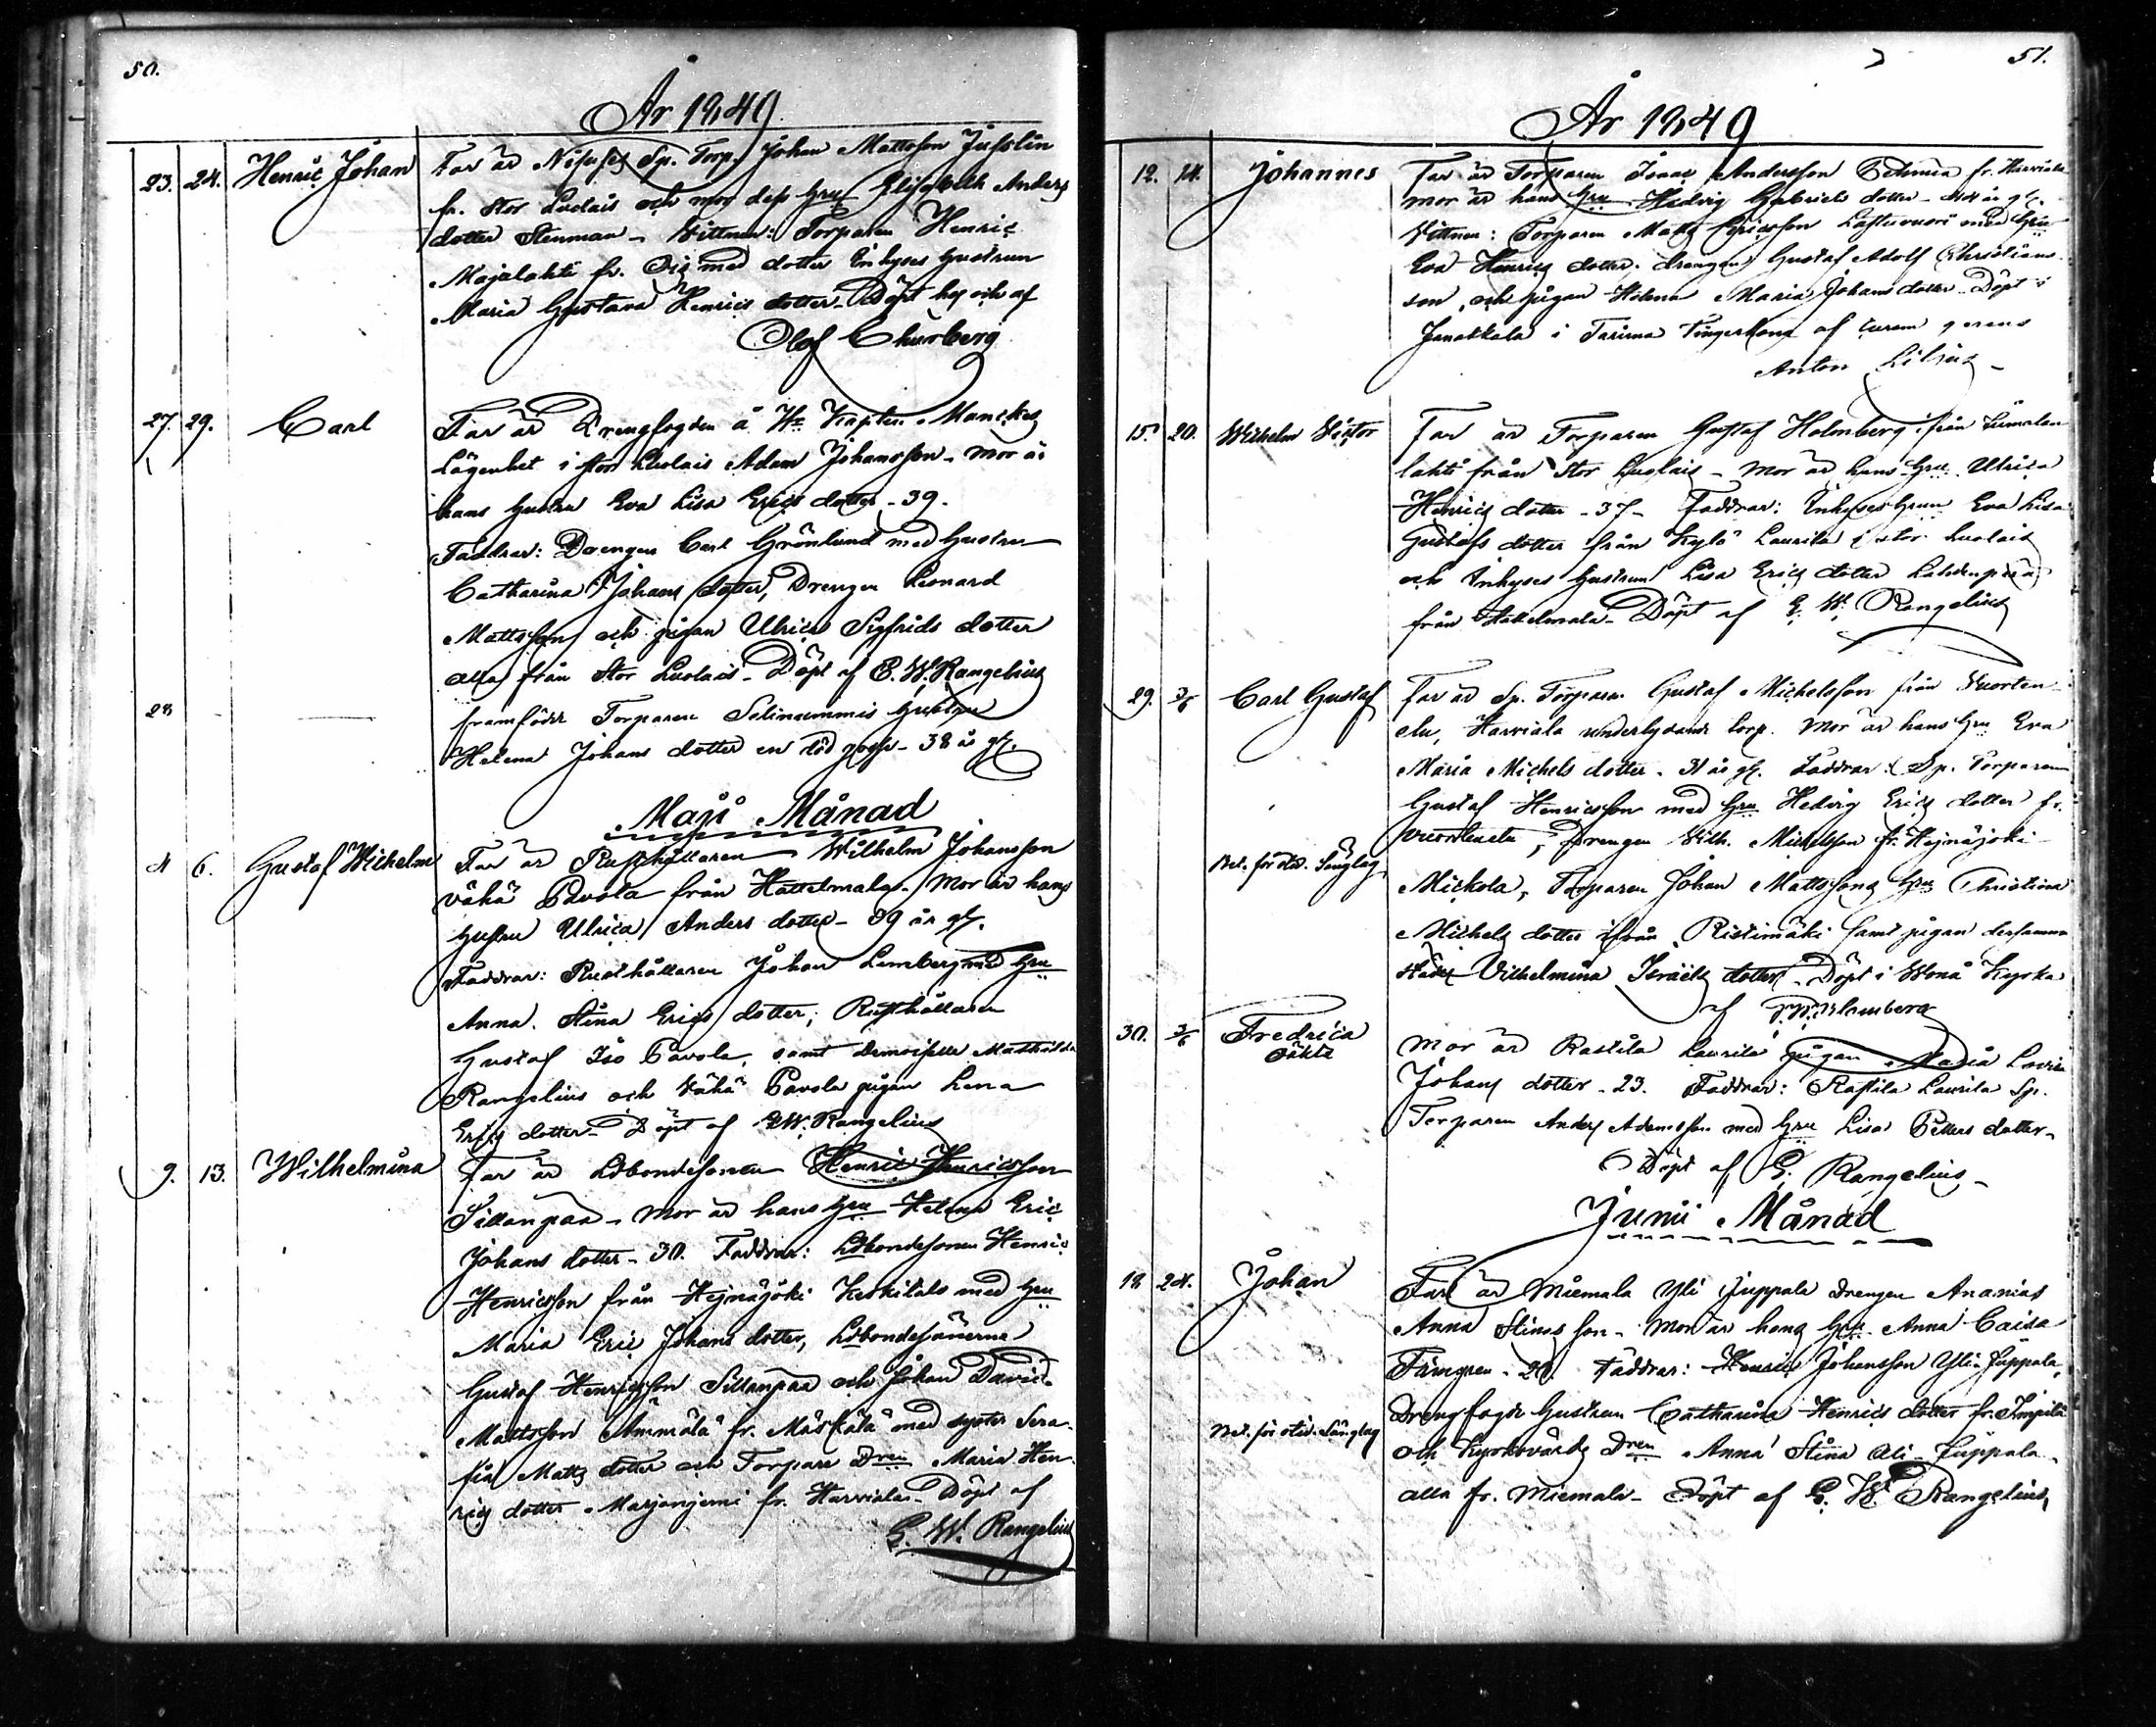 50.
År 1849
23. 24. Henric Johan
Far är Sp. Torp. Johan Mattsson
fr. Stor Luolais och mor dess Hru Elisabeth Anders
dotter Stenman - Vittnen: Torparen Henric
Majalahti fr. med dotter Inhyses hustrun
Maria Gustava Henrics dotter - Döpt af
Olof Churberg
27. 29. Carl
Far är Drengfogden å Hr Kapten Manckes
Lägenhet i Stor Luolais Adam Johansson - mor är
hans hustru Eva Lisa Erics dotter - 39.
Faddrar: Drengen Carl Grönlund med hustru
Catharina Johans dotter, Drengen Leonard
Mattsson och pigan Ulrica Sigfrids dotter
alla från Stor Luolais - Döpt af E. W. Rangelius
28 —
framfödde Torparen hustru
Helena Johans dotter en död gosse - 38 år gl.
Maji Månad
4 6. Gustaf Wilhelm
Far är Rusthållaren Wilhelm Johansson
vähä Pavola från Hattelmala - Mor är hans
hustru Ulrica Anders dotter - 39 år gl.
Faddrar: Rusthållaren Johan Lemberg med Hru
Anna Stina Erics dotter; Rusthållaren
Gustaf Iso Pavola, samt demoiselle Mathilda
Rangelius och Vähä Pavola pigan Lena
Erics dotter - Döpt af E. W. Rangelius
9. 13. Wilhelmina
Far är Ldbondesonen Henric Henricsson
Sillanpää - Mor är hans Hru Helena Eric
Johans dotter - 30. Faddrar: Ldbondesonen Henric
Henricsson från Hejnäjoki Keskitalo med Hru
Maria Eric Johans dotter, Ldbondesönerna
Gustaf Henricsson Sillanpää och Johan David
Mattsson Ämmälä fr. Mäskälä med syster Sera-
fia Matts dotter och Torpare Dren Maria Hen-
rics dotter Marjaniemi fr. Harviala - Döpt af
E. W. Rangelius
51.
År 1849
12. 14. Johannes
Far är Torparen Isaac Andersson fr. Harviala
mor är hans Hru Hedvig Gabriels dotter - 44 år gl.
Vittnen: Torparen Matts Ericsson med Hru
Eva Henrics dotter. drengen Gustaf Adolf Christians-
son, och pigan Helena Maria Johans dotter - Döpt i
Janakkala i Tarinma af curam gerens
Anton Lilius -
15. 20. Wilhelm Victor
Far är Torparen Gustaf Holmberg ifrån
lahti från Stor Luolais - Mor är hans Hru Ulrica
Henrics dotter - 37 - Faddrar: Inhyses hrun Eva Lisa
Gustafs dotter från Kylä Laurila i Stor Luolais
och Inhyses hustrun Lisa Erics dotter Lahdenperä
från Hattelmala - Döpt af E. W. Rangelius
29. 3/6 Carl Gustaf
Far är Sp. Torparen Gustaf Michelsson från Vuorten-
Harviala underlydande torp. Mor är hans Hru Eva
Maria Michels dotter - 31 år gl. Faddrar: Sp. Torparen
Gustaf Henricsson med Hru Hedvig Erics dotter fr.
Drengen Wilh. Michelsson fr. Hejnäjoki
Mickola, Torparen Johan Mattssons Hru Christina
Michels dotter ifrån Ristimäki samt pigan dersamma-
städes Vilhelmina Israels dotter - Döpt i Wånå Kyrka
af Blomberg
30. 3/6 Fredrica
oäkta
Mor är Rastila Laurila pigan Maria Lovisa
Johans dotter - 23. Faddrar: Rastila Laurila Sp.
Torparen Anders Adamsson med Hru Lisa Petters dotter -
Döpt af E. Rangelius -
Junii Månad
18 24. Johan
Far är Miemala Yli Juppala drengen Ananias
Anna Stinas son - Mor är hans Hru Anna Caisa
Faddrar: Henric Johansson Yli Juppala,
Drengfogde hustrun Catharina Henrics dotter fr. Impilä
och Kyrkovärds Dren Anna Stina Ali-Juppala -
alla fr. Miemala - Döpt af E. W. Rangelius